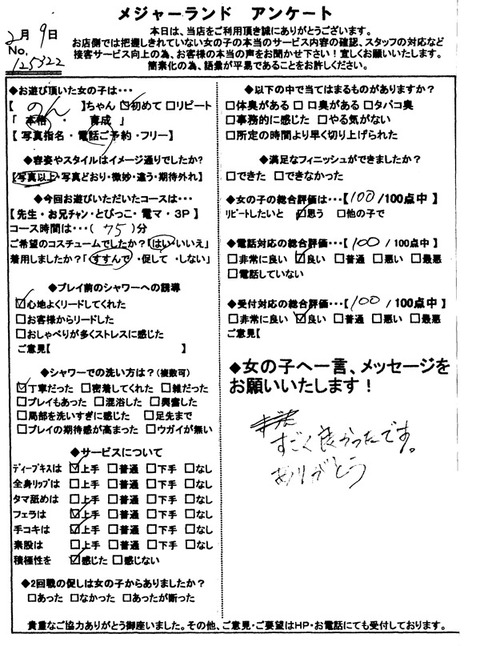 メジャーランド アンケート
2月9日
No.
125322
本日は、当店をご利用頂き誠にありがとうございます。
お店側では把握しきれていない女の子の本当のサービス内容の確認、スタッフの対応など
接客サービス向上の為、お客様の本当の声をお聞かせ下さい!宜しくお願いいたします。
簡素化の為、語彙が平易であることをお許しください。
◆お遊び頂いた女の子は・・・
【 のん 】ちゃん ☑初めて ☐リピート
「 本格 ・ 育成 」
【 写真指名・電話ご予約・フリー】
◆容姿やスタイルはイメージ通りでしたか?
【写真以上・写真どおり・微妙・違う・期待外れ】
◆今回お遊びいただいたコースは・・・
【先生・お兄チャン・とびっこ・電マ・3P】
コース時間は・・・( 75 )分
ご希望のコスチュームでしたか?「はい・いいえ」
着用しましたか?「すすんで ・促して ・しない」
◆プレイ前のシャワーへの誘導
☑心地よくリードしてくれた
☐お客様からリードした
☐おしゃべりが多くストレスに感じた
ご意見【 】
◆シャワーでの洗い方は?(複数可)
☑丁寧だった ☐密着してくれた ☐雑だった
☐プレイもあった ☐混浴した ☐興奮した
☐局部を洗いすぎに感じた ☐足先まで
☐プレイの期待感が高まった ☐ウガイが無い
◆サービスについて
ディープキスは ☑上手 ☐普通 ☐下手 ☐なし
全身リップは ☐上手 ☐普通 ☐下手 ☐なし
タマ舐めは ☐上手 ☐普通 ☐下手 ☐なし
フェラは ☑上手 ☐普通 ☐下手 ☐なし
手コキは ☑上手 ☐普通 ☐下手 ☐なし
素股は ☐上手 ☐普通 ☐下手 ☐なし
積極性を ☑感じた ☐感じない
◆2回戦の促しは女の子からありましたか?
☐あった ☐なかった ☐あったが断った
◆以下の中で当てはまるものがありますか?
☐体臭がある ☐口臭がある ☐タバコ臭
☐事務的に感じた ☐やる気がない
☐所定の時間より早く切り上げられた
◆満足なフィニッシュができましたか?
☐できた ☐できなかった
◆女の子の総合評価は・・・【 100 /100点中】
リピートしたいと ☑思う ☐他の子で
◆電話対応の総合評価は・・・【 100 /100点中】
☐非常に良い ☑良い ☐普通 ☐悪い ☐最悪
☐電話していない
◆受付対応の総合評価は・・・【 100 /100点中】
☐非常に良い ☑良い ☐普通 ☐悪い ☐最悪
ご意見【
◆女の子へ一言、メッセージを
お願いいたします!
すごく良かったです。
ありがとう
貴重なご協力ありがとう御座いました。その他、ご意見・ご要望はHP・お電話にても受付しております。